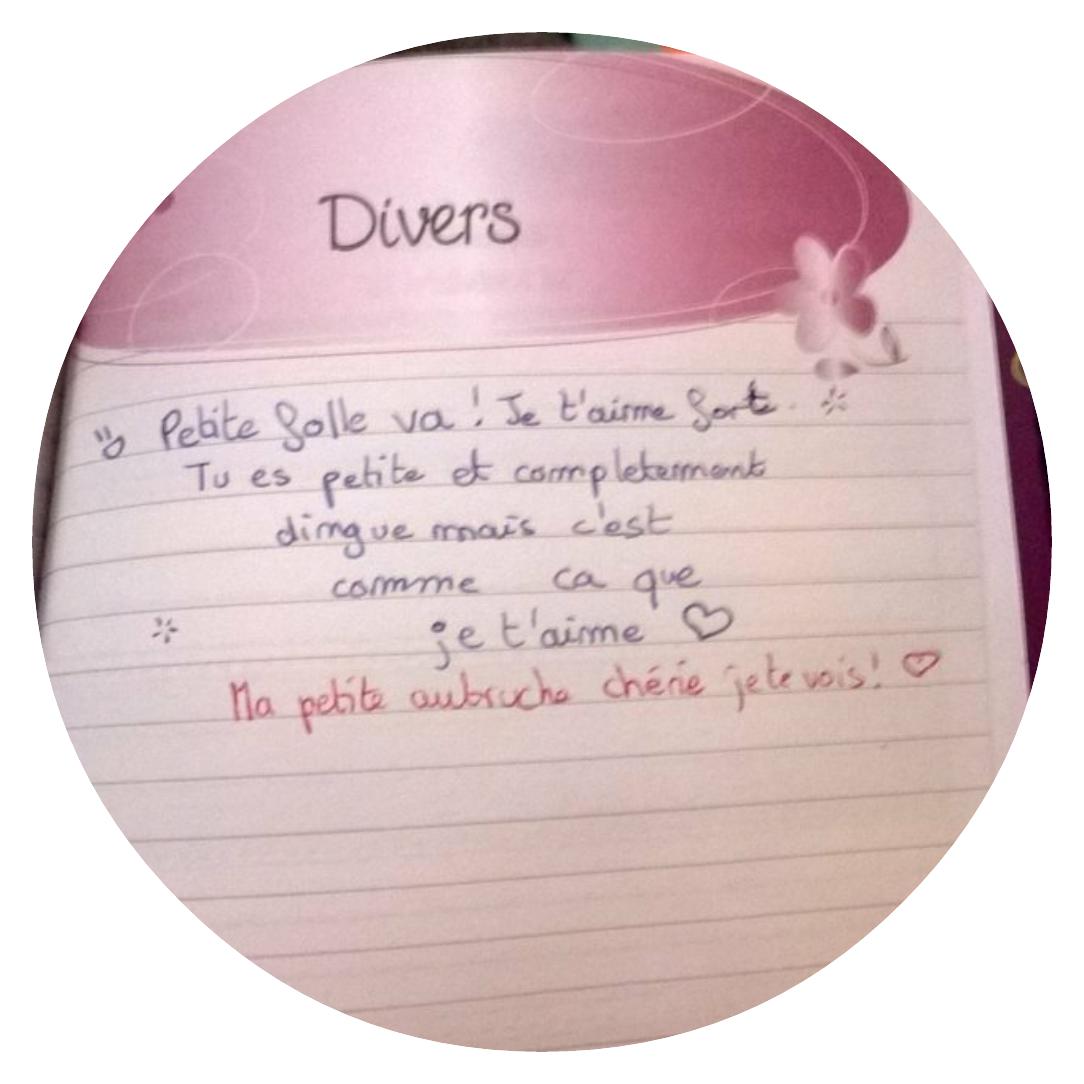 Divers
Petite folle va ! Je t'aime forte.
Tu es petite et completement
dingue mais c'est
comme ca que
je t'aime ♡
Ma petite aubruche chérie je te vois! ♡